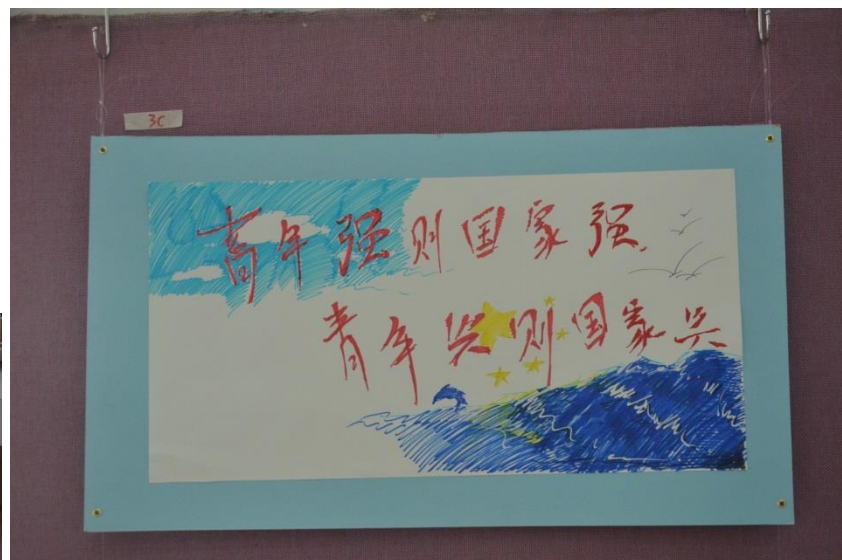 3C
高年强则国家强,
青年兴则国家兴